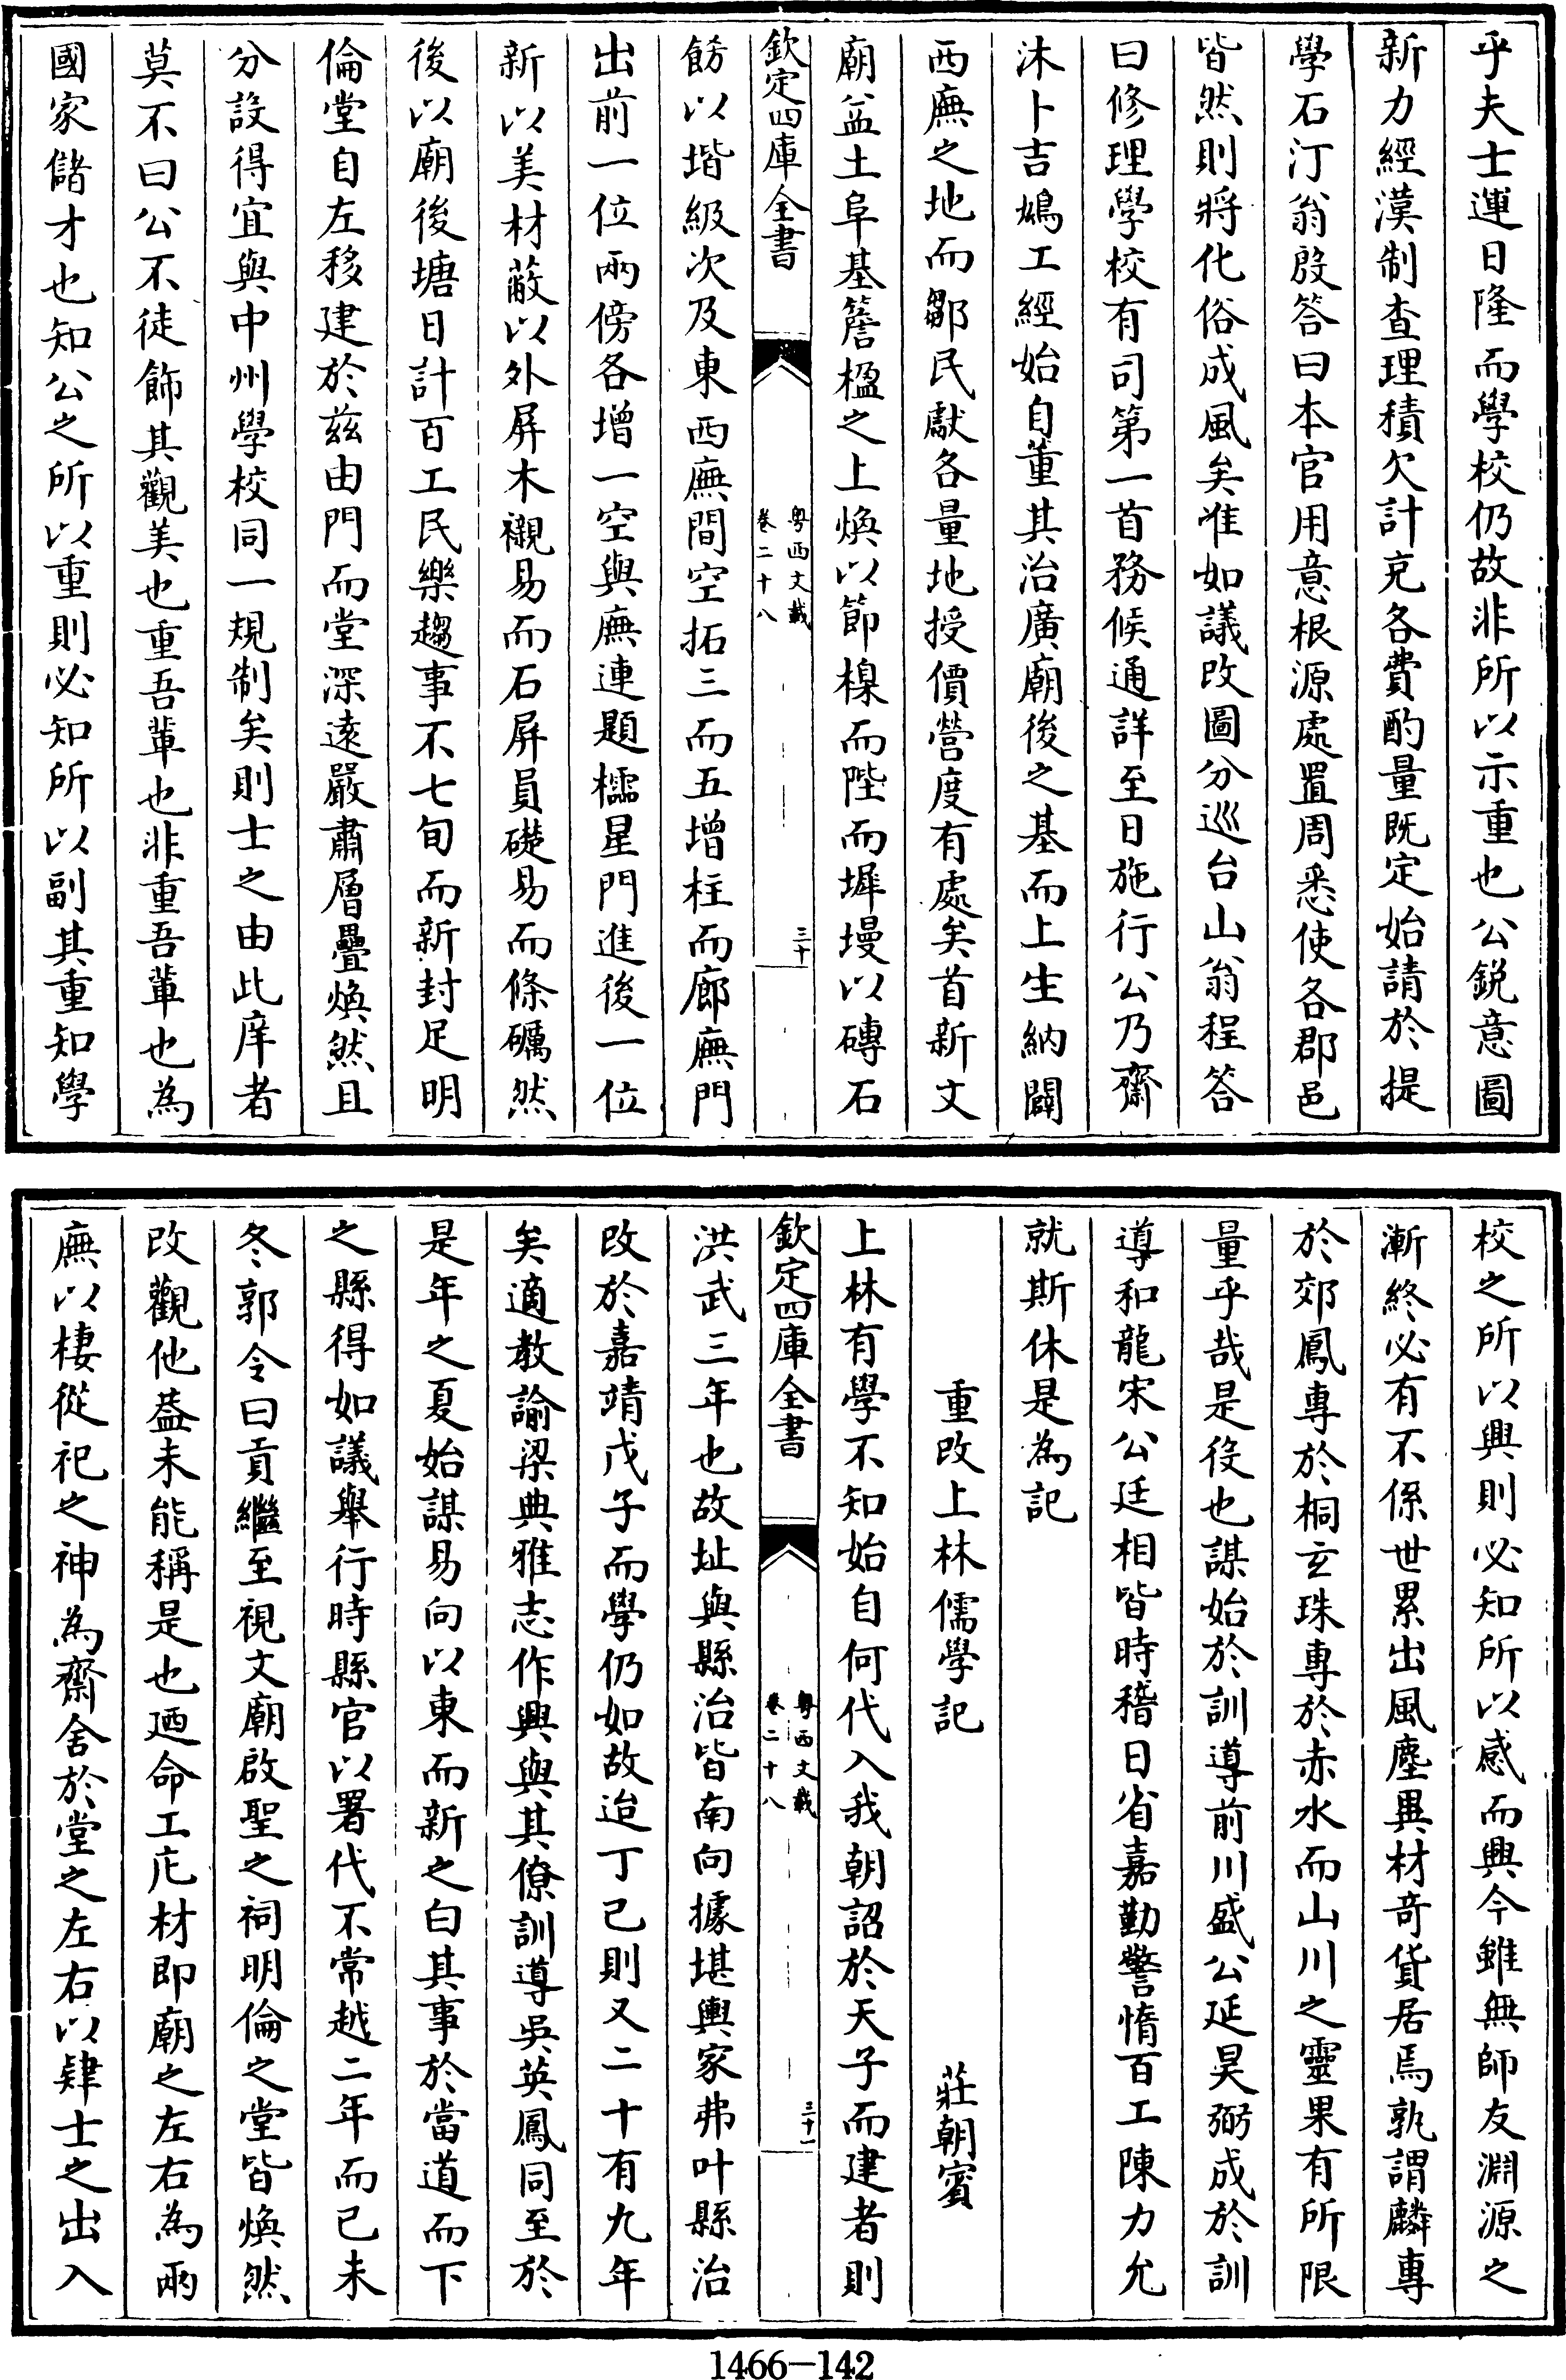 乎夫士運日隆而學校仍故非所以示重也公銳意圖
新力經漠制查理積欠計克各費酌量既定始請於提
學石汀翁殷答曰本官用意根源處置周悉使各郡邑
皆然則將化俗成風矣惟如議改圖分巡台山翁程答
曰修理學校有司第一首務候通詳至日施行公乃齋
沐卜吉鳩工經始自董其治廣廟後之基而上生納闢
西廡之地而鄒民獻各量地授價營度有處矣首新文
廟益土阜基簷楹之上煥以節榱而陛而墀墁以磚石
欽定四庫全書
粤西文載
卷二十八
三十
餝以堦級次及東西廡間空拓三而五增柱而廊廡門
出前一位兩傍各增一空與廡連題櫺星門進後一位
新以美材蔽以外屏木襯易而石屏員礎易而條礪然
後以廟後塘日計百工民樂趨事不七旬而新封足明
倫堂自左移建於兹由門而堂深遠嚴肅層疊煥然且
分設得宜與中州學校同一規制矣則士之由此庠者
莫不曰公不徒飾其觀美也重吾輩也非重吾輩也為
國家儲才也知公之所以重則必知所以副其重知學
校之所以興則必知所以感而興今雖無師友淵源之
漸終必有不係世累出風塵異材竒貨居焉孰謂麟專
於郊鳳專於桐玄珠專於赤水而山川之靈果有所限
量乎哉是役也謀始於訓導前川盛公延昊弼成於訓
導和龍宋公廷相皆時稽日省嘉勤警惰百工陳力允
就斯休是為記
重改上林儒學記
莊朝賓
上林有學不知始自何代入我朝詔於天子而建者則
欽定四庫全書
粤西文載
卷二十八
三十一
洪武三年也故址與縣治皆南向據堪輿家弗叶縣治
改於嘉靖戊子而學仍如故迨丁己則又二十有九年
矣適教諭梁典雅志作興與其僚訓導吳英鳳同至於
是年之夏始謀易向以東而新之白其事於當道而下
之縣得如議舉行時縣官以署代不常越二年而已未
冬郭令曰貢繼至視文廟啟聖之祠明倫之堂皆煥然
改觀他葢未能稱是也廼命工庀材即廟之左右為兩
廡以棲從祀之神為齋舍於堂之左右以肄士之出入
1466-142